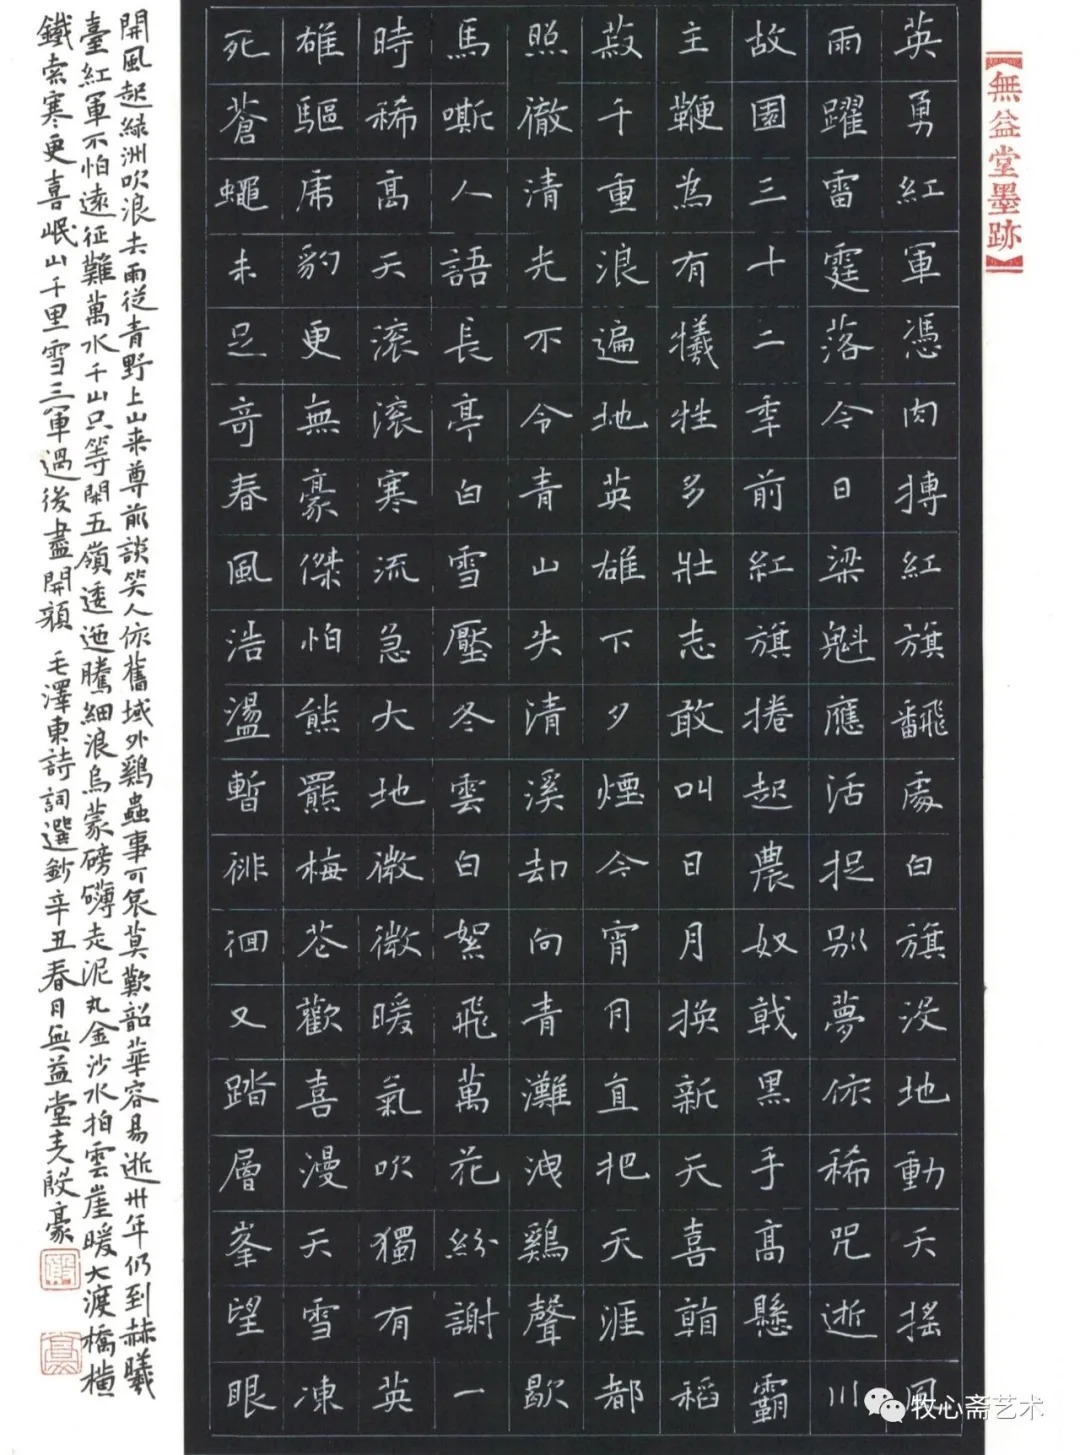 【無益堂墨跡】
英勇紅軍憑肉搏紅旗翻處白旗没地動天搖風
雨躍雷霆落今日梁魁應活捉别夢依稀咒逝川
故園三十二秊前紅旗捲起農奴戟黑手高懸霸
主鞭為有犧牲多壯志敢叫日月換新天喜看稻
菽千重浪遍地英雄下夕煙今宵月直把天涯都
照徹清光不令青山失清溪却向青灘洩鷄聲歇
馬嘶人語長亭白雪壓冬雲白絮飛萬花紛謝一
時稀高天滚滚寒流急大地微微暖氣吹獨有英
雄驅虎豹更無豪傑怕熊羆梅花歡喜漫天雪凍
死蒼蠅未足奇春風浩盪暫徘徊又踏層峯望眼
開風起綠洲吹浪去雨從青野上山来尊前談笑人依舊域外鷄蟲事可哀莫歎韶華容易逝卅年仍到赫曦
臺紅軍不怕遠征難萬水千山只等閑五嶺逶迤騰細浪烏蒙磅礴走泥丸金沙水拍雲崖暖大渡橋橫
鐵索寒更喜岷山千里雪三軍過後盡開顏 毛澤東詩詞選鈔辛丑春月無益堂殷豪
牧心斋艺术